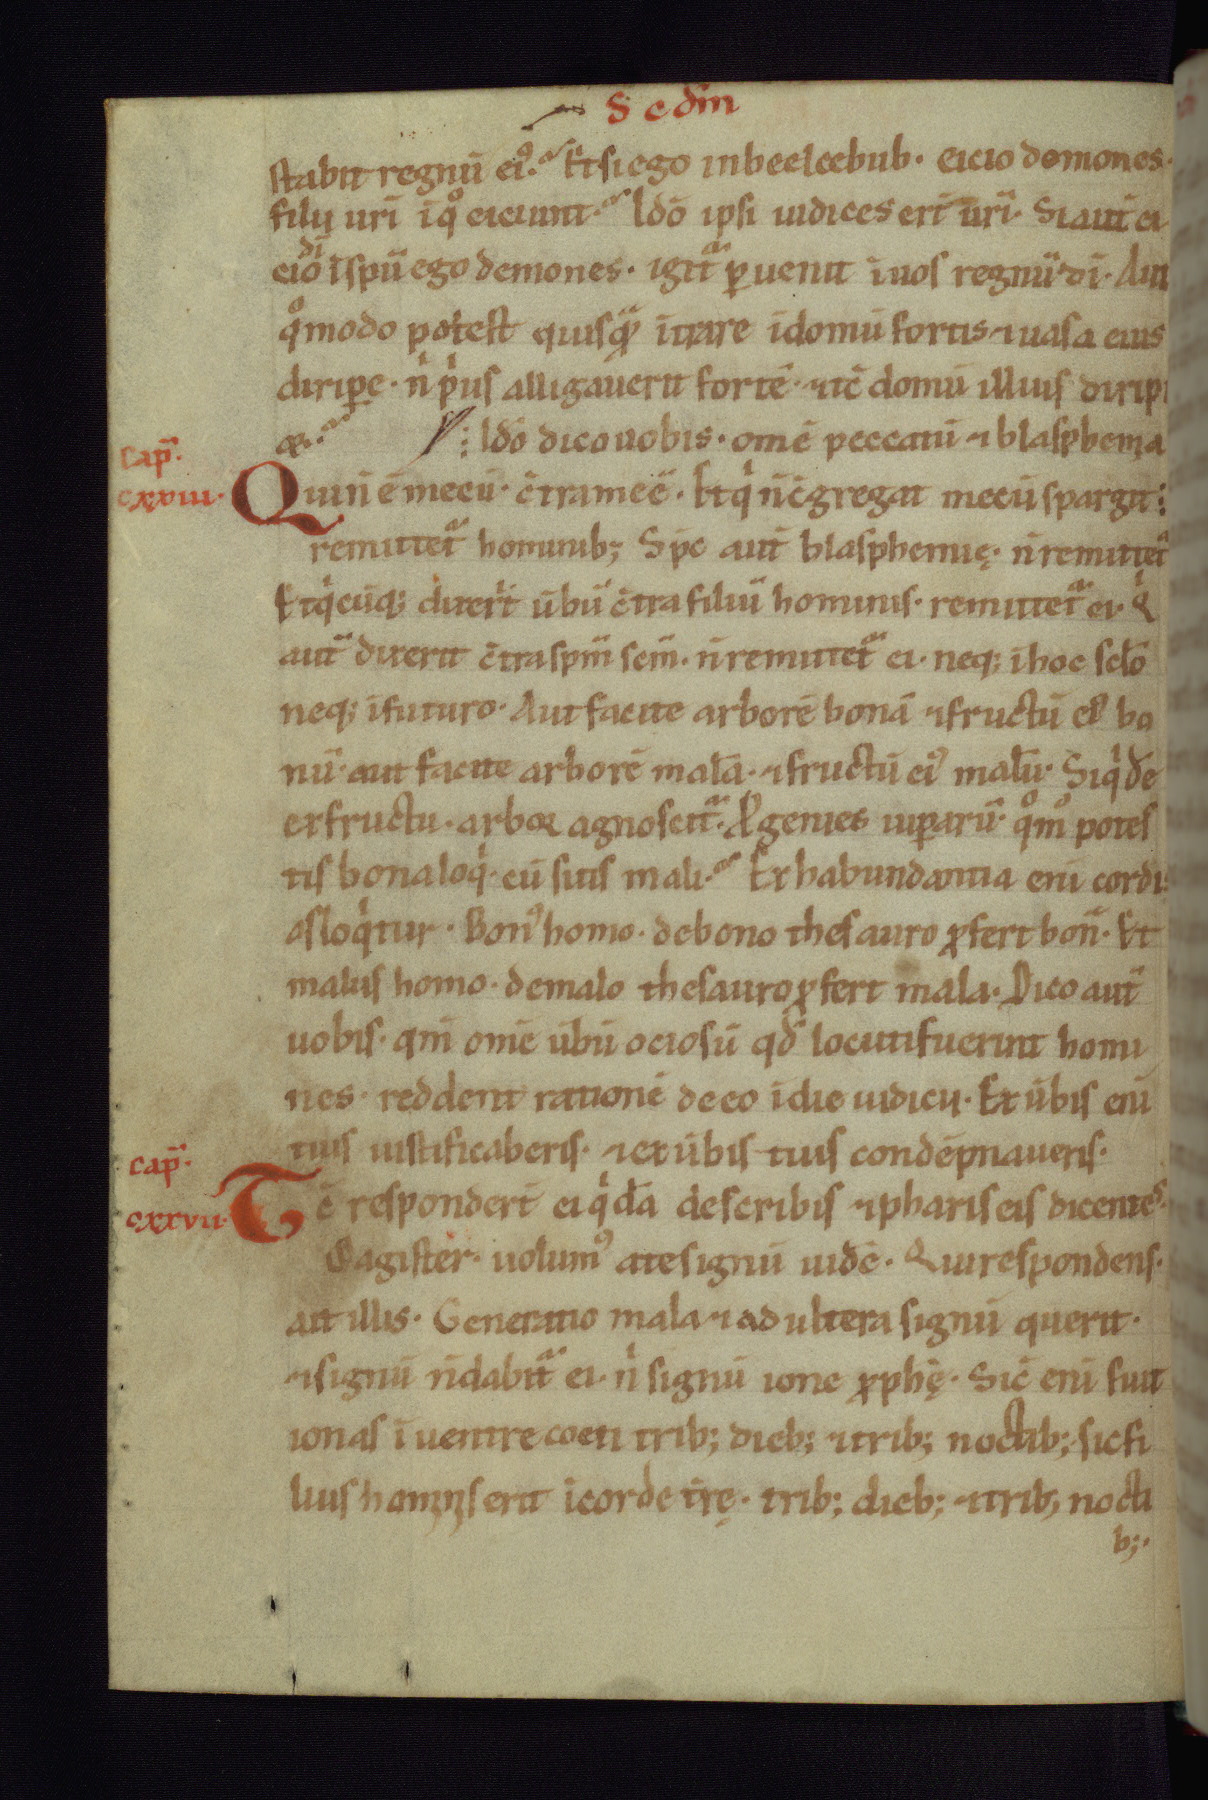 S c dm̄
stabit regnū ei⁹. Et si ego in beelcebub. eicio demones.
filij uri ī qͦ eiciunt. Idō ipsi iudices erī urī. Si aut̄ ei
ciō ī spū dī ego demones. igit̄ ꝑuenit ī uos regnū dī. Aut
qͦmodo potest quisqᷓ ītrare ī domū fortis ⁊ uasa eius
diriꝑe. n̄ pͥus alligauerit fortē. ⁊ tc̄ domū illius diripi
et. Idō dico uobis. om̄e peccatū ⁊ blasphemia
capͫ.
cxxiii.
Qui n̄ ē mecū. c̄tra me ē. Et qͥ n̄ c̄gregat mecū spargit:
remittet̄ hominib; Spc aut̄ blasphemię. n̄ remittet̄
Et qͥcūq; dixerit ūbū c̄tra filiū hominis. remittet̄ ei. Qͥ
aut̄ dixerit c̄tra spm̄ scm̄. n̄ remittet̄ ei. neq; ī hoc sclō
neq; ī futuro. Aut facite arborē bonā ⁊ fructū ei⁹ bo
nū. aut facite arborē malā. ⁊ fructū ei⁹ malū. Siqͥde
ex fructu. arbor agnoscit̄. Pͦgenies uiꝑarū. qͦmͦ potes
tis bona loqͥ. cū sitis mali. Ex habundantia eni cordis
os loqͥtur. Bon⁹ homo. de bono thesauro ꝓfert bon̄. Et
malus homo. de malo thesauro ꝓfert mala. Dico aut̄
uobis. qm̄ om̄e ūbū ociosū qd̄ locuti fuerint homi
nes. reddent rationē de eo ī die iudicij. Ex ūbis eni
tuis iustificaberis. ⁊ ex ūbis tuis condēpnaueris.
capͫ.
cxxvii.
Tc̄ respondert̄ ei qͥdā de scribis ⁊ phariseis dicentes.
Magister. uolum⁹ a te signū uidē. Qui respondens.
ait illis. Generatio mala ⁊ adultera signū querit.
⁊ signū n̄ dabit̄ ei. nͥ signū ione ꝓphę. Sic̄ eni fuit
ionas ī uentre coeti trib; dieb; ⁊ trib; noctib; sic fi
lius hominis erit ī corde tr̄ę. trib; dieb; ⁊ trib; nocti
b;.